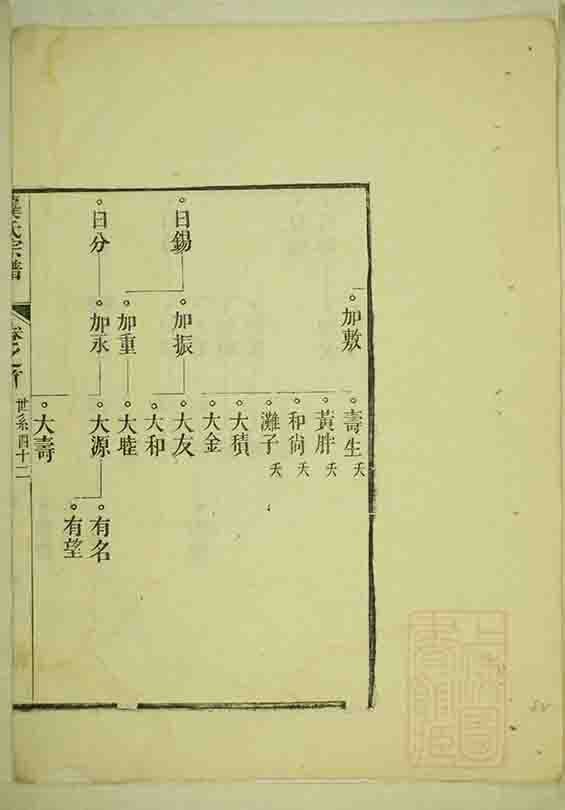 加敷
壽生 夭
黃胖 夭
和尙 夭
灘子 夭
大積
大金
日錫
加振
大友
大和
加重
大睦
日分
加永
大源
有名
有望
大壽
氏宗譜
世系四十二